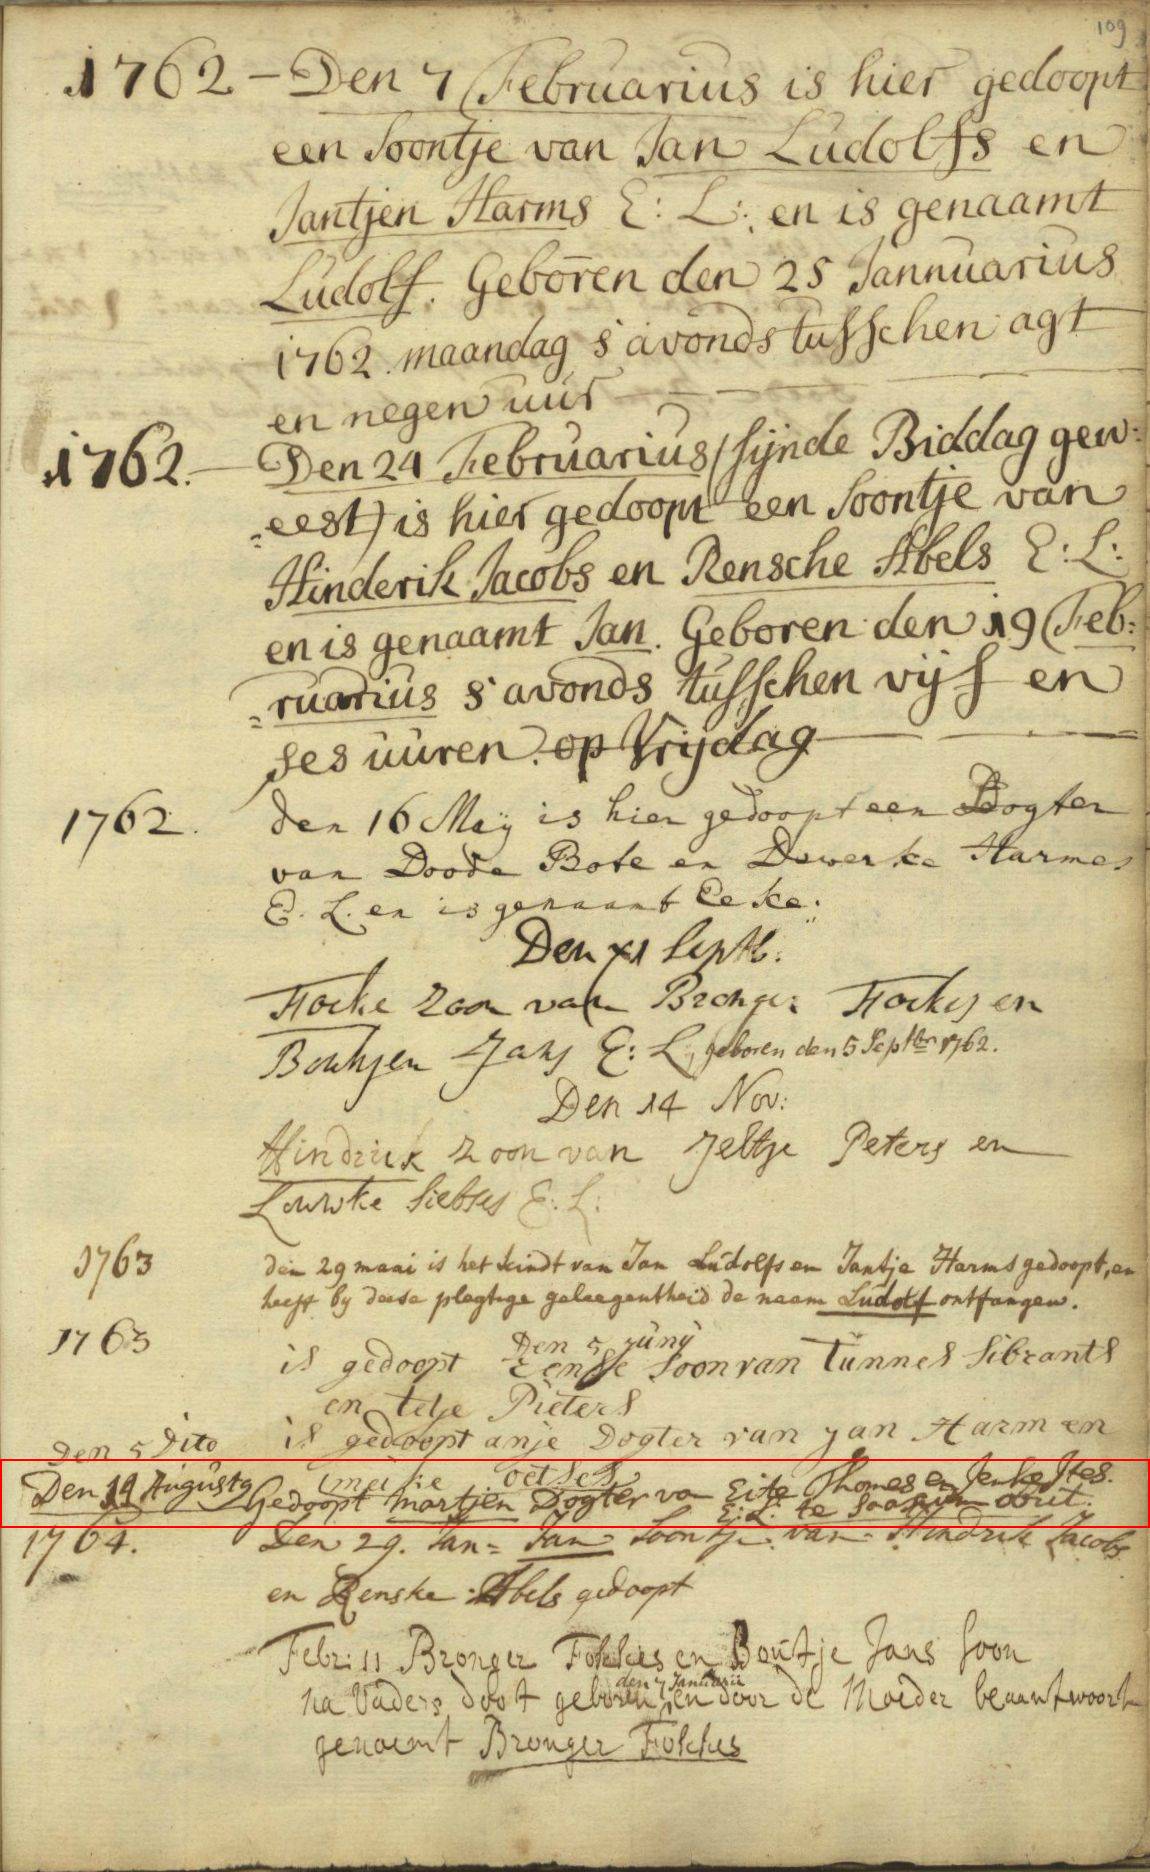 109
1762 – Den 7 Februarius is hier gedoopt
een Soontje van Jan Ludolfs en
Jantjen Harms E: L: en is genaamt
Ludolf. Geboren den 25 Jannuarius
1762. maandag s'avonds tusschen agt
en negen uur
1762. – Den 24 Februarius (sijnde Biddag gew:
=eest) is hier gedoopt een Soontje van
Hinderik Jacobs en Rensche Abels E: L:
en is genaamt Jan. Geboren den 19 Feb:
=ruarius s'avonds tusschen vijf en
ses uuren. op Vrijdag
1762. den 16 Meij is hier gedoopt een Dogter
van Doode Bote en Dewerke Harmes
E. L. en is genaamt Eeke.
Den 11 Septb:
Focke Zoon van Bronger Fockes en
Boutjen Jans E: L: geboren den 5 Septbr 1762.
Den 14 Nov:
Hindrik Zoon van Jeltje Peters en
Louwke Siebses E: L:
1763 den 29 maai is het kindt van Jan Ludolfs en Jantje Harms gedoopt, en
heeft by deese plegtege geleegentheid de naam Ludolf ontfangen.
1763 Den 5 junij
is gedoopt Eenje Soon van Tunnes Sibrants
en tetje Pieters
Den 5 Dito is gedoopt anje Dogter van jan Harm en
oetses
Den 14 Augusty Gedoopt martjen Dogter va Eite Thomes en Jenke Jtes.
E: L: te
1764. Den 29. Jan= Jan Soontje van Hindrik Jacobs
en Renske Abels gedoopt
Febr: 11 Bronger Fokkes en Boutje Jans soon
den 7 Januarii
na Vaders doot geboren en door de Moeder beaantwoort
genoemt Bronger Fokkes